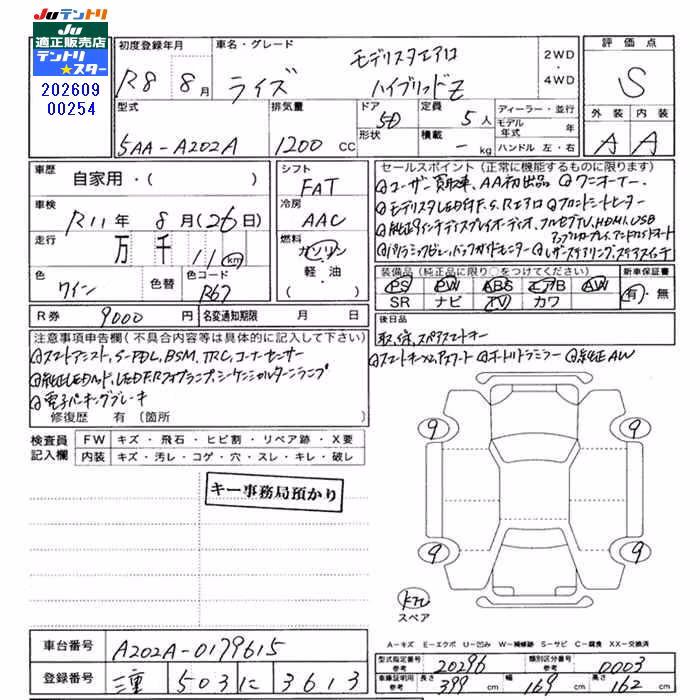 JUテントリ
JU
適正販売店
テントリ
★スター
202609
00254
初度登録年月 R8 8月
車名・グレード ライズ モデリスタエアロ ハイブリッドZ
2WD ・ 4WD
評価点 S
外装 A 内装 A
型式 5AA-A202A
排気量 1200 CC
ドア 5D 形状
定員 5人 積載 - kg
ディーラー・並行
モデル年式 年
ハンドル 左・右
車歴 自家用・( )
車検 R11年 8月(26日)
走行 万 千 11 km
色 ワイン 色替 色コード R67
シフト FAT
冷房 AAC
燃料 ガソリン 軽・油 ( )
セールスポイント(正常に機能するものに限ります)
ユーザー買取車、AA初出品 ワンオーナー
モデリスタLED付F、S、Rエアロ フロントシートヒーター
純正9インチディスプレイオーディオ、フルセグTV、HDMI、USB
アップルカープレイ、アンドロイドオート
パノラミックビュー、バックガイドモニター レザーステアリング、ステアスイッチ
装備品(純正品に限り○をつけてください)
PS PW ABS エアB AW
SR ナビ TV カワ
新車保証書 有・無
R券 9000円 名変通知期限 月 日
後日品
取、保、スペアスマートキー
注意事項申告欄(不具合内容等は具体的に記入して下さい)
スマートアシスト、S-PDL、BSM、TRC、コーナーセンサー
純正LEDヘッド、LED F、Rフォグランプ、シーケンシャルターンランプ
電子パーキングブレーキ
修復歴 有(箇所 )
スマートキー×2、Pスタート オートドアミラー 純正AW
検査員記入欄
FW キズ・飛石・ヒビ割・リペア跡・X要
内装 キズ・汚レ・コゲ・穴・スレ・キレ・破レ
キー事務局預かり
9 9
9 9
スペア
A-キズ E-エクボ U-凹み W-補修跡 S-サビ C-腐食 XX-交換済
車台番号 A202A-0179615
登録番号 三重 503 に 3613
型式指定番号 参考 20296 類別区分番号 参考 0003
車庫証明用 参考 長さ 399 cm 幅 169 cm 高さ 162 cm